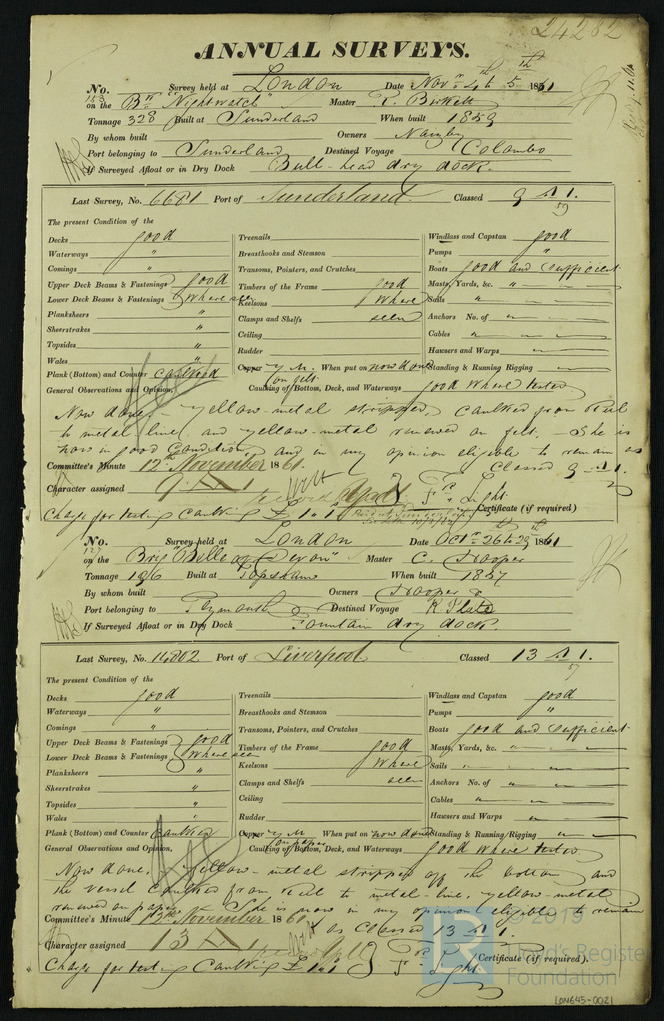 24282
ANNUAL SURVEYS.
No. 153 Survey held at London Date Novr 4th & 5th 1861
on the Bn "Nightwatch" Master R. Birkett
Tonnage 328 Built at Sunderland When built 1859
By whom built Owners
Port belonging to Sunderland Destined Voyage Colombo
If Surveyed Afloat or in Dry Dock Bull-head dry dock.
Last Survey, No. 6681 Port of Sunderland. Classed 9 A 1. 59
The present Condition of the
Decks good Treenails Windlass and Capstan good
Waterways " Breasthooks and Stemson Pumps "
Comings " Transoms, Pointers, and Crutches Boats good and sufficient
Upper Deck Beams & Fastenings good Timbers of the Frame good Masts, Yards, &c. "
Lower Deck Beams & Fastenings Where seen Keelsons Where Sails "
Planksheers " Clamps and Shelfs seen Anchors No. of "
Sheerstrakes " Ceiling Cables "
Topsides " Rudder Hawsers and Warps "
Wales " Copper Y.M. on felt When put on now done Standing & Running Rigging "
Plank (Bottom) and Counter Caulked Caulking of Bottom, Deck, and Waterways good where tested
General Observations and Opinion,
Now done. Yellow-metal stripped, caulked from keel
to metal line and yellow-metal renewed on felt. She is
now in good condition and in my opinion eligible to remain as
Committee's Minute 12th November 1861. Classed 9 A 1.
Character assigned 9 A 1 Light
Charge for testing Caulking £ 1 " 1 Certificate (if required)
No. 127 Survey held at London Date Octr 26th 29th 1861
on the Brig "Belle of Devon" Master C. Hooper
Tonnage 196 Built at Topsham When built 1857
By whom built Owners Hooper &
Port belonging to Plymouth Destined Voyage R. Plate
If Surveyed Afloat or in Dry Dock Fountain dry dock.
Last Survey, No. 14802 Port of Liverpool Classed 13 A 1. 57
The present Condition of the
Decks good Treenails Windlass and Capstan good
Waterways " Breasthooks and Stemson Pumps "
Comings " Transoms, Pointers, and Crutches Boats good and sufficient
Upper Deck Beams & Fastenings good Timbers of the Frame good Masts, Yards, &c. "
Lower Deck Beams & Fastenings Where seen Keelsons Where Sails "
Planksheers " Clamps and Shelfs seen Anchors No. of "
Sheerstrakes " Ceiling Cables "
Topsides " Rudder Hawsers and Warps "
Wales " Copper Y.M. on paper When put on now done Standing & Running Rigging "
Plank (Bottom) and Counter Caulked Caulking of Bottom, Deck, and Waterways good where tested
General Observations and Opinion,
Now done. Yellow-metal stripped off the bottom and
the vessel caulked from keel to metal-line, yellow-metal
renewed on paper. She is now in my opinion eligible to remain
Committee's Minute 12th November 1861. as Classed 13 A 1.
Character assigned 13 A 1 Light
Charge for testing Caulking £ 1 " 1 Certificate (if required).
© 2019
Lloyd's Register
Foundation
LON645-0021